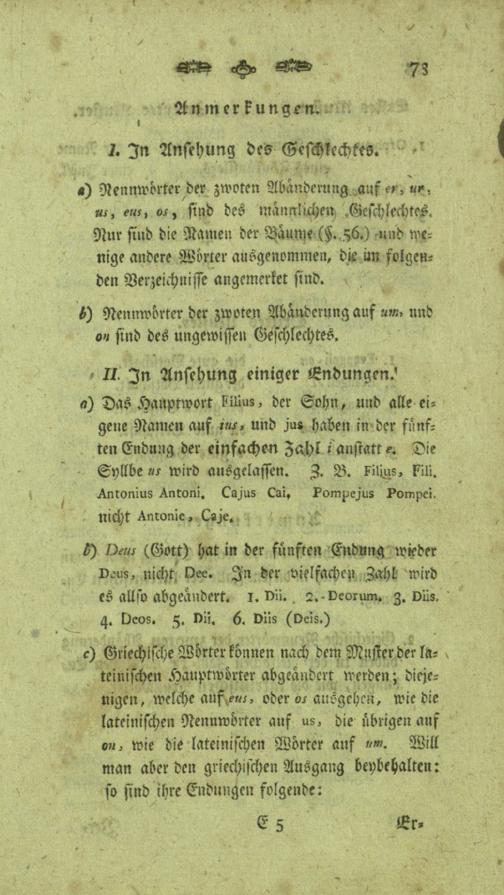 73
Anmerkungen.
I. In Ansehung des Geschlechtes.
a) Nennwörter der zwoten Abänderung auf er, ur,
us, eus, os, sind des männlichen Geschlechtes.
Nur sind die Namen der Bäume (§. 56.) und we-
nige andere Wörter ausgenommen, die im folgen-
den Verzeichnisse angemerket sind.
b) Nennwörter der zwoten Abänderung auf um, und
on sind des ungewissen Geschlechtes.
II. In Ansehung einiger Endungen.
a) Das Hauptwort Filius, der Sohn, und alle ei-
gene Namen auf ius, und jus haben in der fünf-
ten Endung der einfachen Zahl i anstatt e. Die
Syllbe us wird ausgelassen. Z. B. Filius, Fili.
Antonius Antoni. Cajus Cai. Pompejus Pompei.
nicht Antonie, Caje.
b) Deus (Gott) hat in der fünften Endung wieder
Deus, nicht Dee. In der vielfachen Zahl wird
es allso abgeändert. 1. Dii. 2. Deorum. 3. Diis.
4. Deos. 5. Dii. 6. Diis (Deis.)
c) Griechische Wörter können nach dem Muster der la-
teinischen Hauptwörter abgeändert werden; dieje-
nigen, welche auf eus, oder os ausgehen, wie die
lateinischen Nennwörter auf us, die übrigen auf
on, wie die lateinischen Wörter auf um. Will
man aber den griechischen Ausgang beybehalten:
so sind ihre Endungen folgende:
E 5 Er-